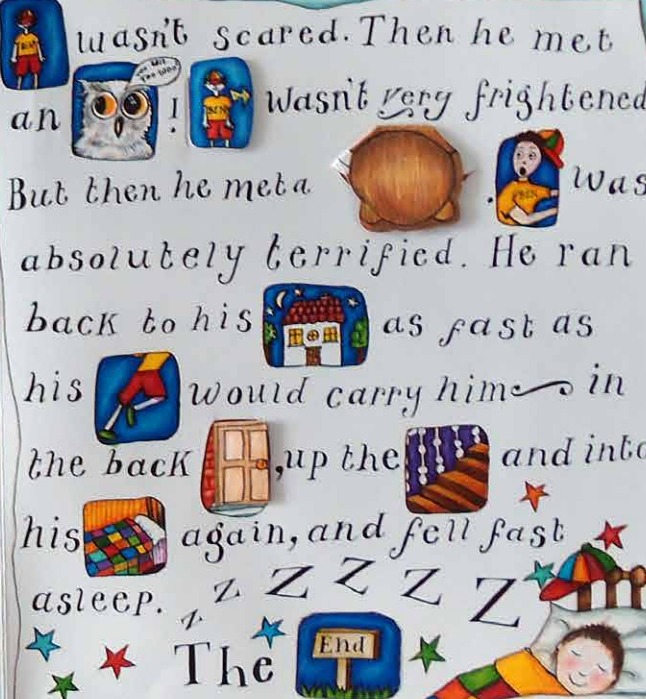 wasn't scared. Then he met
an ! BEN wasn't very frightened
But then he met a . BEN was
absolutely terrified. He ran
back to his as fast as
his would carry him in
the back , up the and into
his again, and fell fast
asleep. z z Z Z Z Z
The End